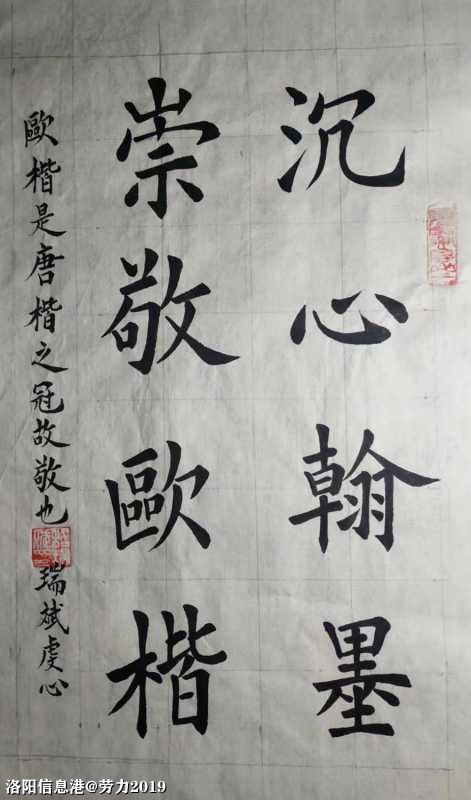 沉心翰墨
崇敬歐楷
歐楷是唐楷之冠故敬也
瑞斌虔心
洛阳信息港@劳力2019